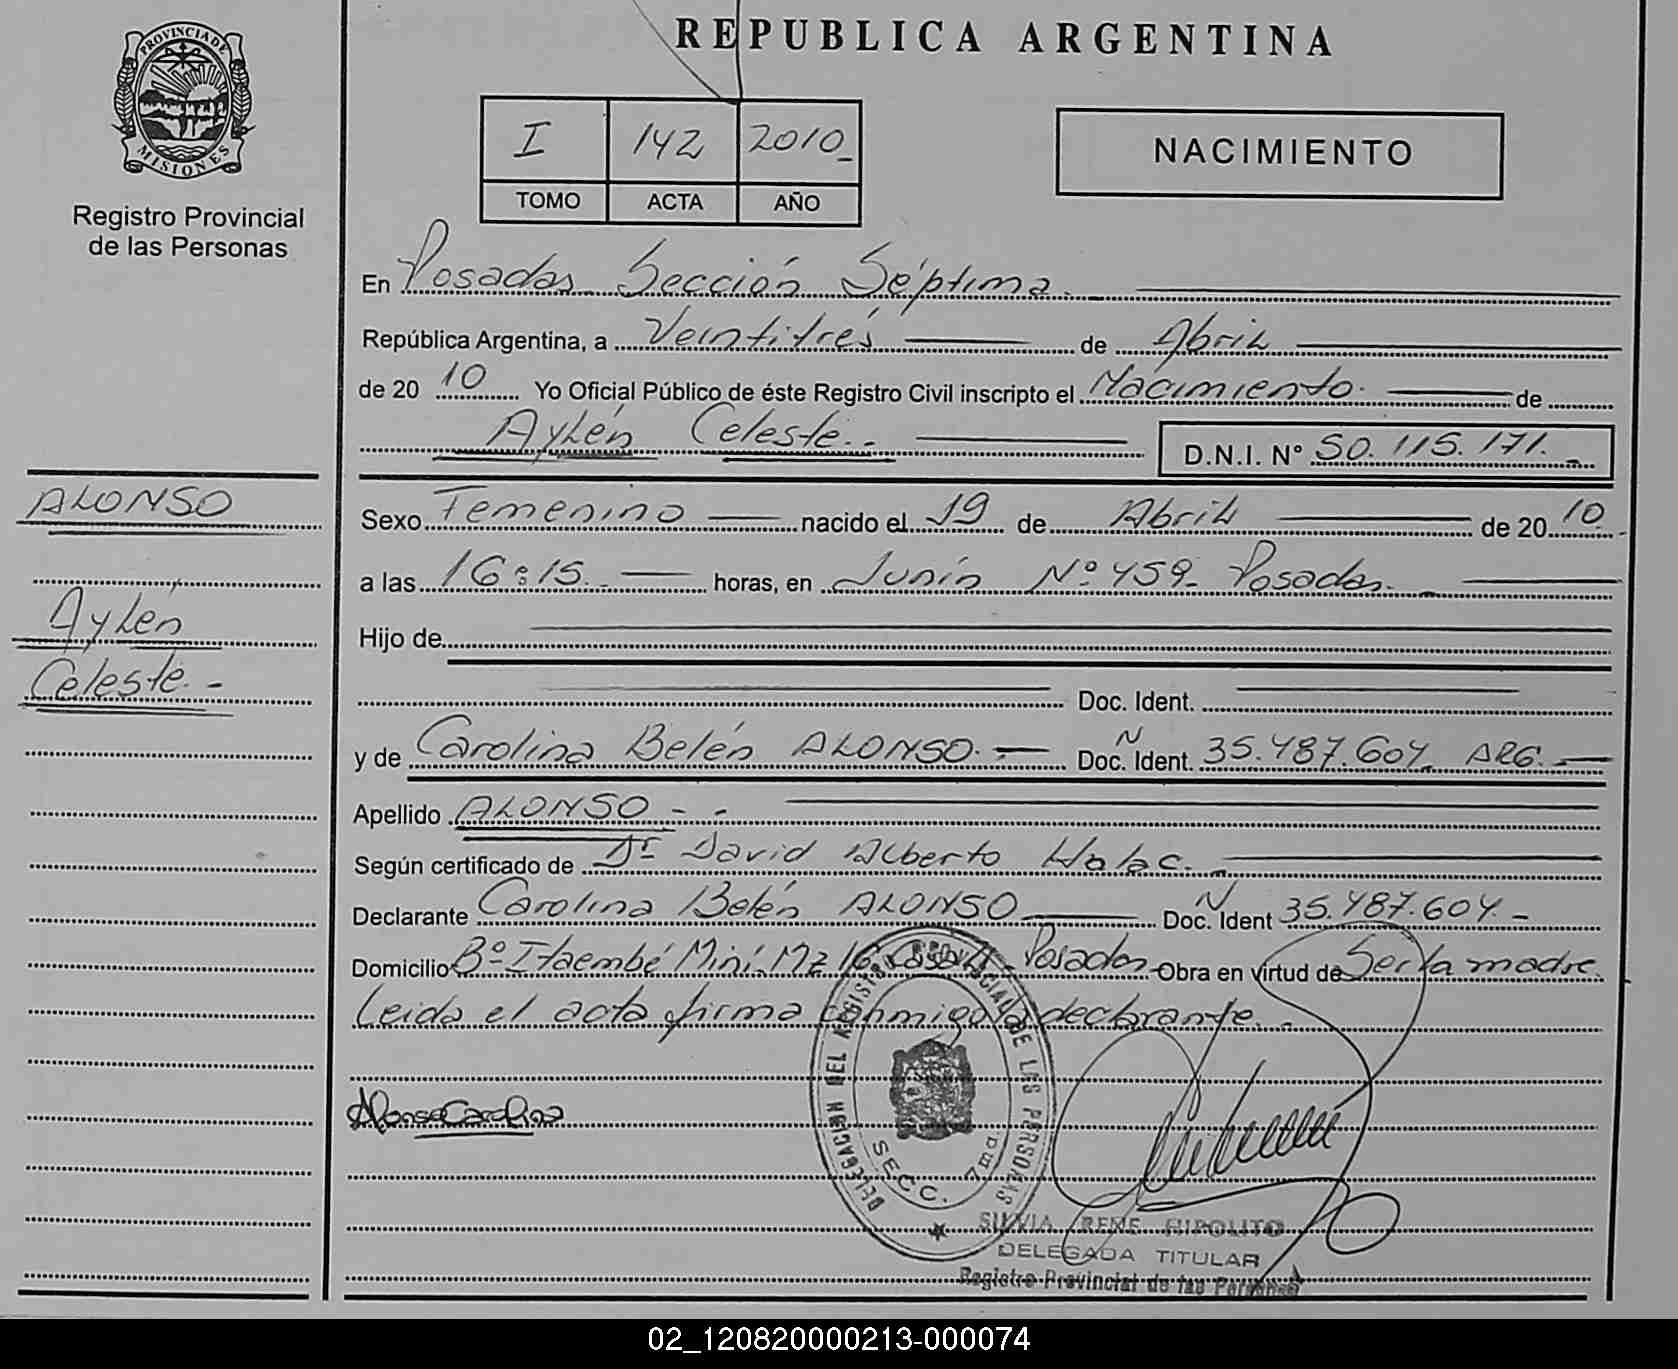 REPUBLICA ARGENTINA
PROVINCIA DE MISIONES
Registro Provincial
de las Personas
I 142 2010_
TOMO ACTA AÑO
NACIMIENTO
En Posadas Sección Séptima.
República Argentina, a Veintitrés de Abril
de 20 10 Yo Oficial Público de éste Registro Civil inscripto el Nacimiento. de
Aylén Celeste.-
D.N.I. Nº 50.115.171._
ALONSO
Aylén
Celeste.-
Sexo Femenino nacido el 19 de Abril de 20 10.
a las 16:15. horas, en Junín Nº 459. Posadas._
Hijo de
Doc. Ident.
y de Carolina Belén ALONSO.- Doc. N Ident. 35.487.604 ARG.
Apellido ALONSO - -
Según certificado de Dr David Alberto Halac._
Declarante Carolina Belén ALONSO Doc. N Ident 35.487.604.-
Domicilio Bº Itaembé Miní. Mz 16 Posadas Obra en virtud de Ser la madre.
Leida el acta firma conmigo la declarante.-
Alonso Carolina
DELEGACION DEL REGISTRO PROVINCIAL DE LAS PERSONAS
SECC. 7ma
SILVIA RENE HIPOLITO
DELEGADA TITULAR
Registro Provincial de las Personas
02_120820000213-000074